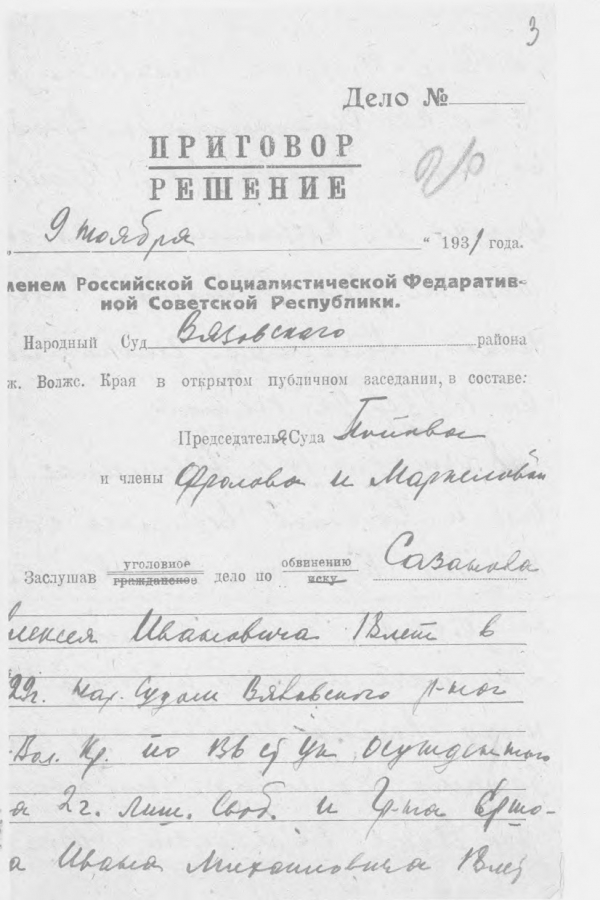 3
Дело №
ПРИГОВОР
РЕШЕНИЕ
9 ноября " 1931 года.
менем Российской Социалистической Федаратив-
ной Советской Республики.
Народный Суд Вязовского района
ж. Волжс. Края в открытом публичном заседании, в составе:
Председателя Суда
и члены Фролова и
Заслушав уголовное гражданское дело по обвинению иску Сазанова
лексея Ивановича 18 лет в
29г. Нар. Судом Вязовского р-на
Вол. Кр. по осужденного
а 2 г. лиш. своб. и гр-на Ершо-
а Ивана Михайловича 18 лет